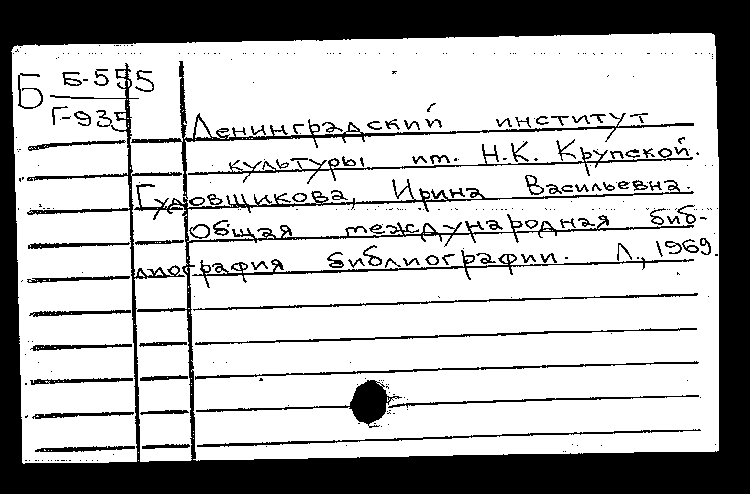 Б Б-555
Г-935
Ленинградский институт
культуры им. Н.К. Крупской.
Гудовщикова, Ирина Васильевна.
Общая международная биб-
лиография библиографии. Л., 1969.